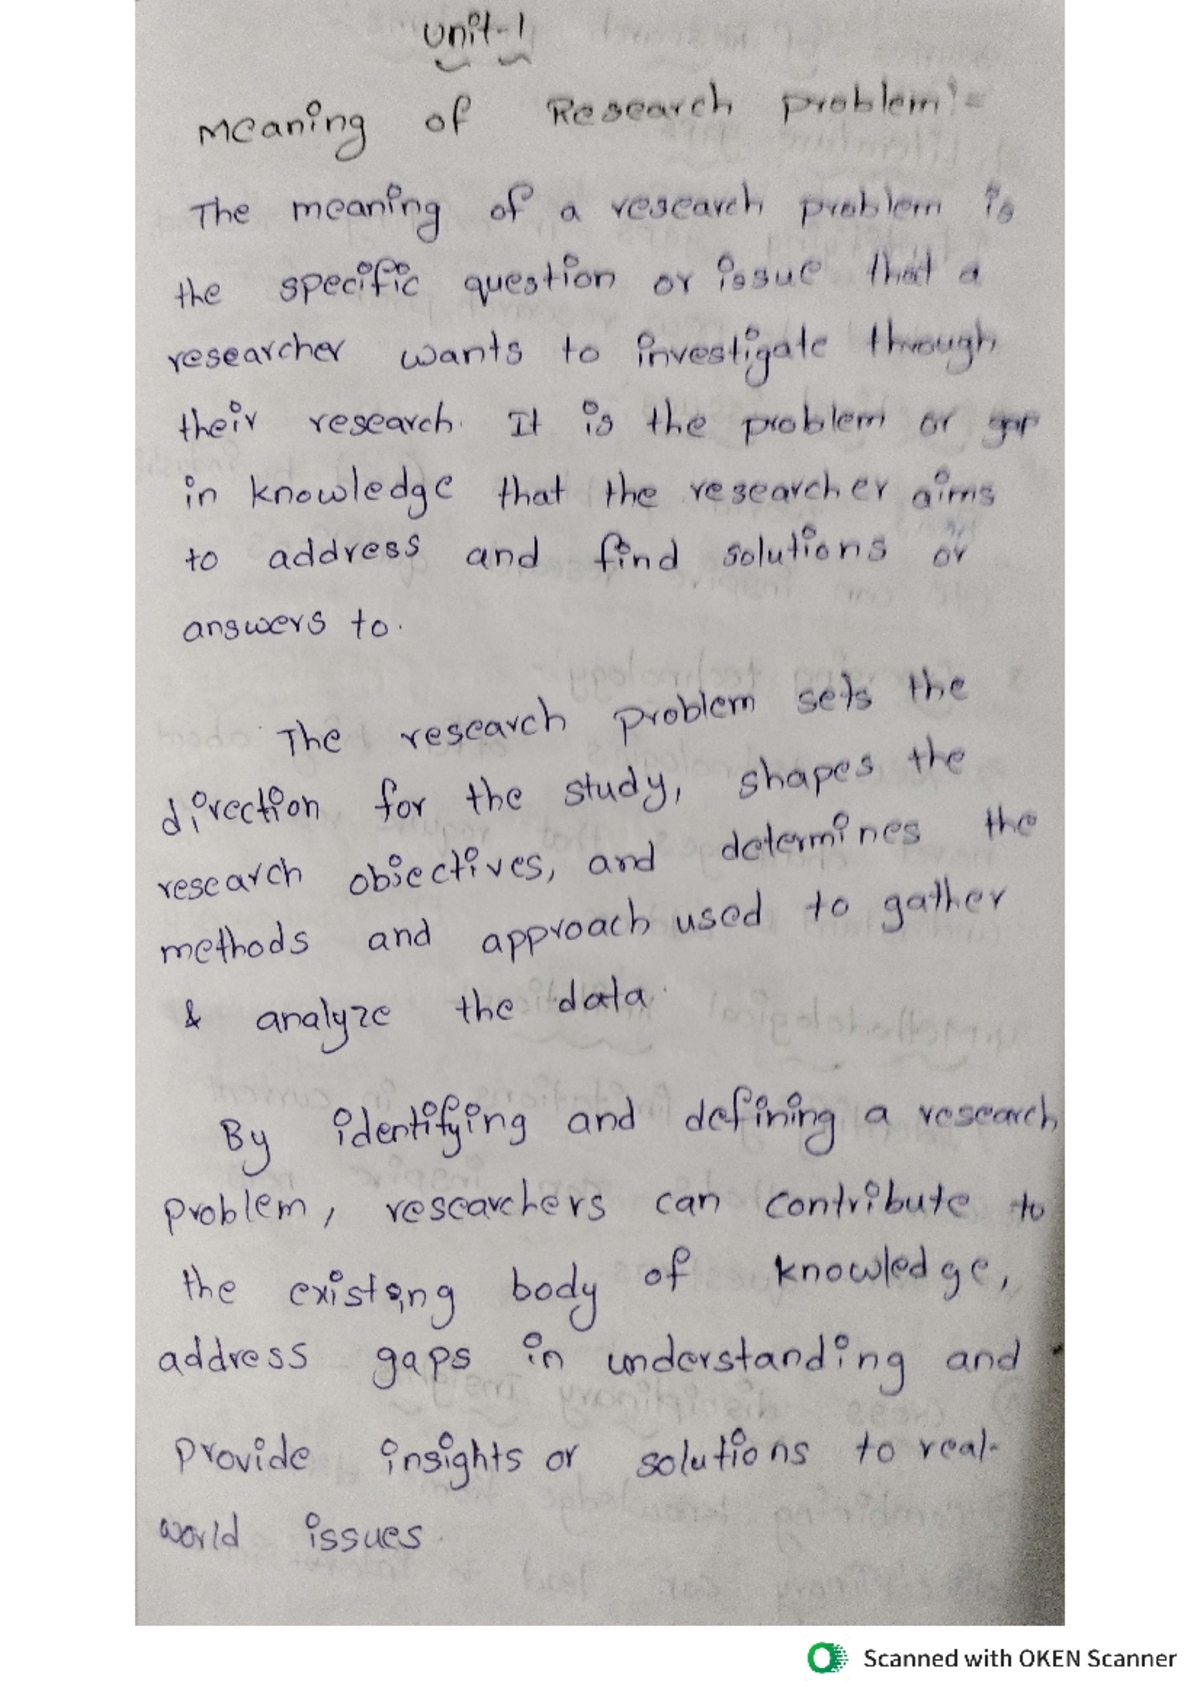 Unit-1
Meaning of Research problem:-
The meaning of a research problem is
the specific question or issue that a
researcher wants to investigate through
their research. It is the problem or gap
in knowledge that the researcher aims
to address and find solutions or
answers to.
The research problem sets the
direction for the study, shapes the
research objectives, and determines the
methods and approach used to gather
& analyze the data.
By identifying and defining a research
problem, researchers can contribute to
the existing body of knowledge,
address gaps in understanding and
Provide insights or solutions to real-
world issues.
Scanned with OKEN Scanner